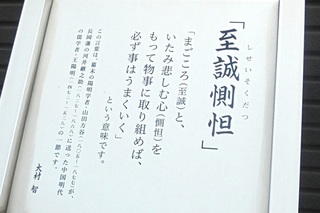 しせいそくだつ
「至誠惻怛」
「まごころ(至誠)と、
いたみ悲しむ心(惻怛)を
もって物事に取り組めば、
必ず事はうまくいく」
という意味です。
この言葉は、幕末の陽明学者・山田方谷(一八〇五-一八七七)が、
長岡藩の河井継之助(一八二七-一八六八)に送った中国明代
の儒学者・王陽明(一四七二-一五二八)の一節です。
大村 智